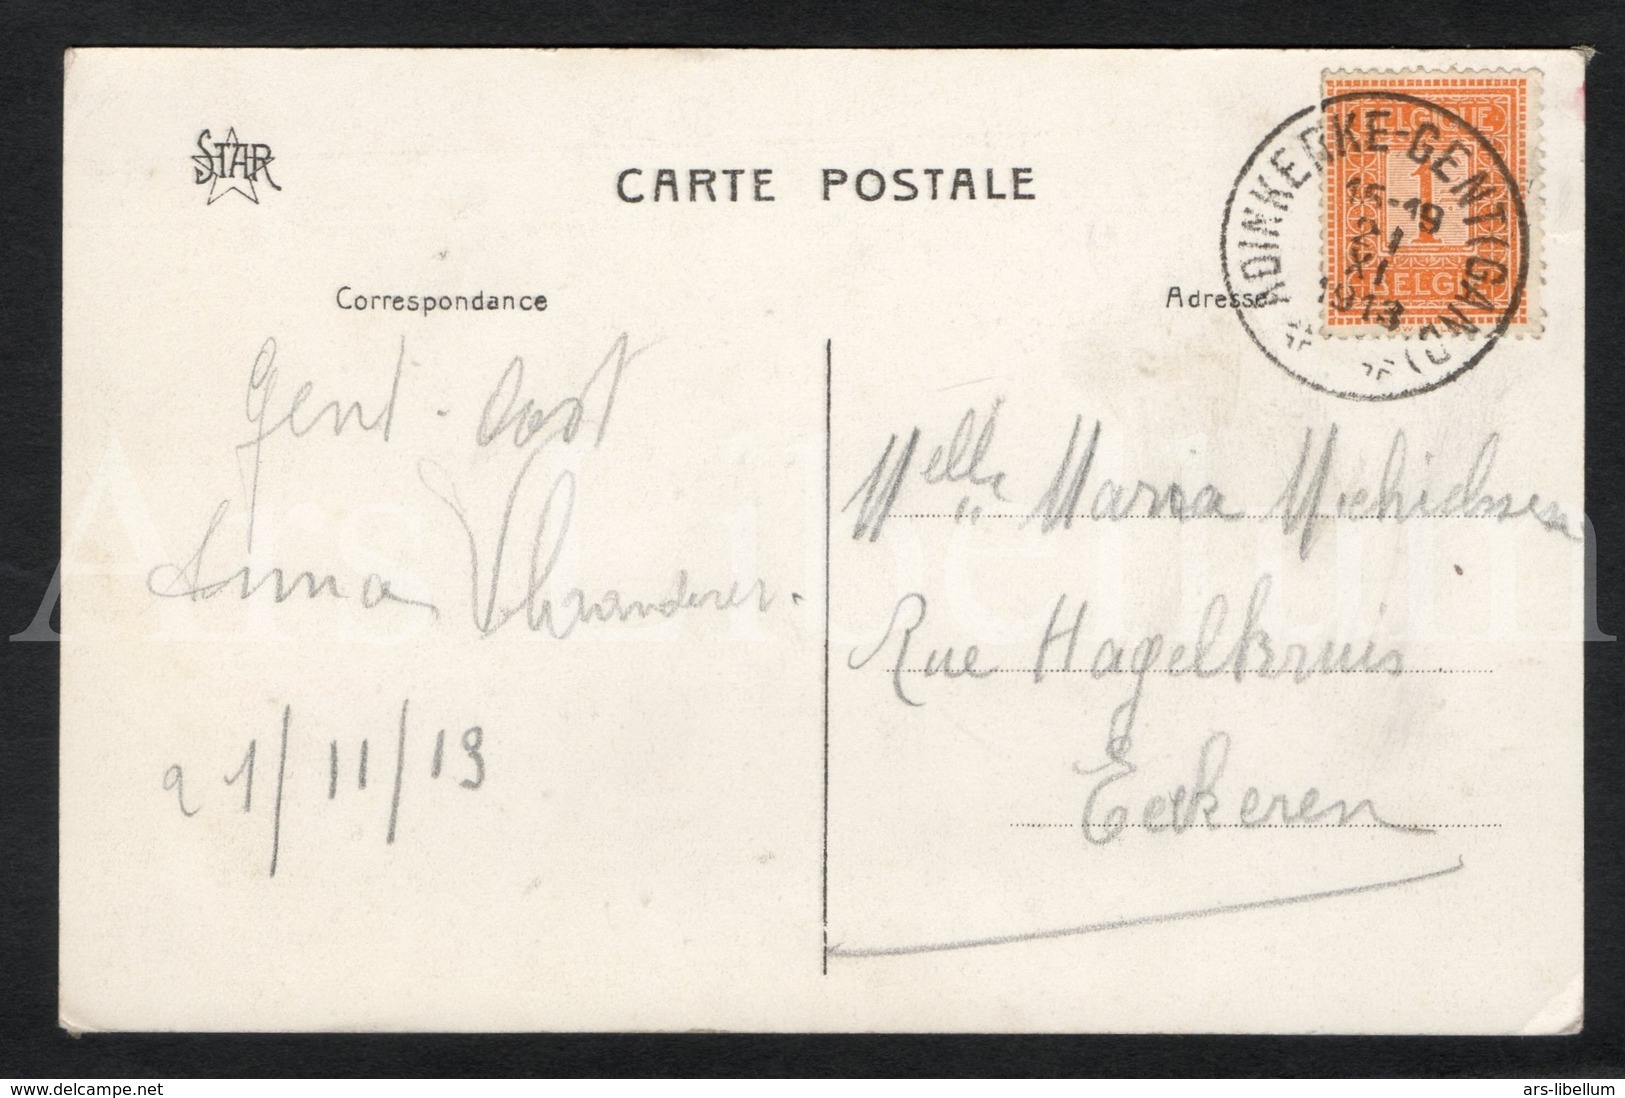 STAR
CARTE POSTALE
Correspondance
Adresse
BELGIQUE
1
BELGIË
ADINKERKE-GENT (GAND)
16-19
21
XI
1913
Gent-Oost
Anna
21/11/13
Melle Maria
Rue Hagelkruis
Eeckeren
Ars Libellum
www.delcampe.net
ars-libellum